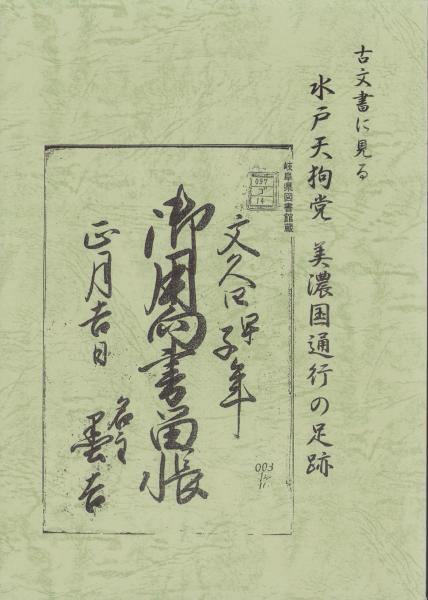 古文書に見る
水戸天狗党 美濃国通行の足跡
岐阜県図書館蔵
097
ゴ
14
文久四年
子年
御用向書留帳
正月吉日
名主
墨吉
003